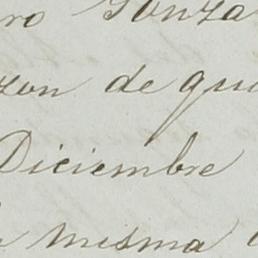 ro Gonza
zon de qui
Diciembre
misma